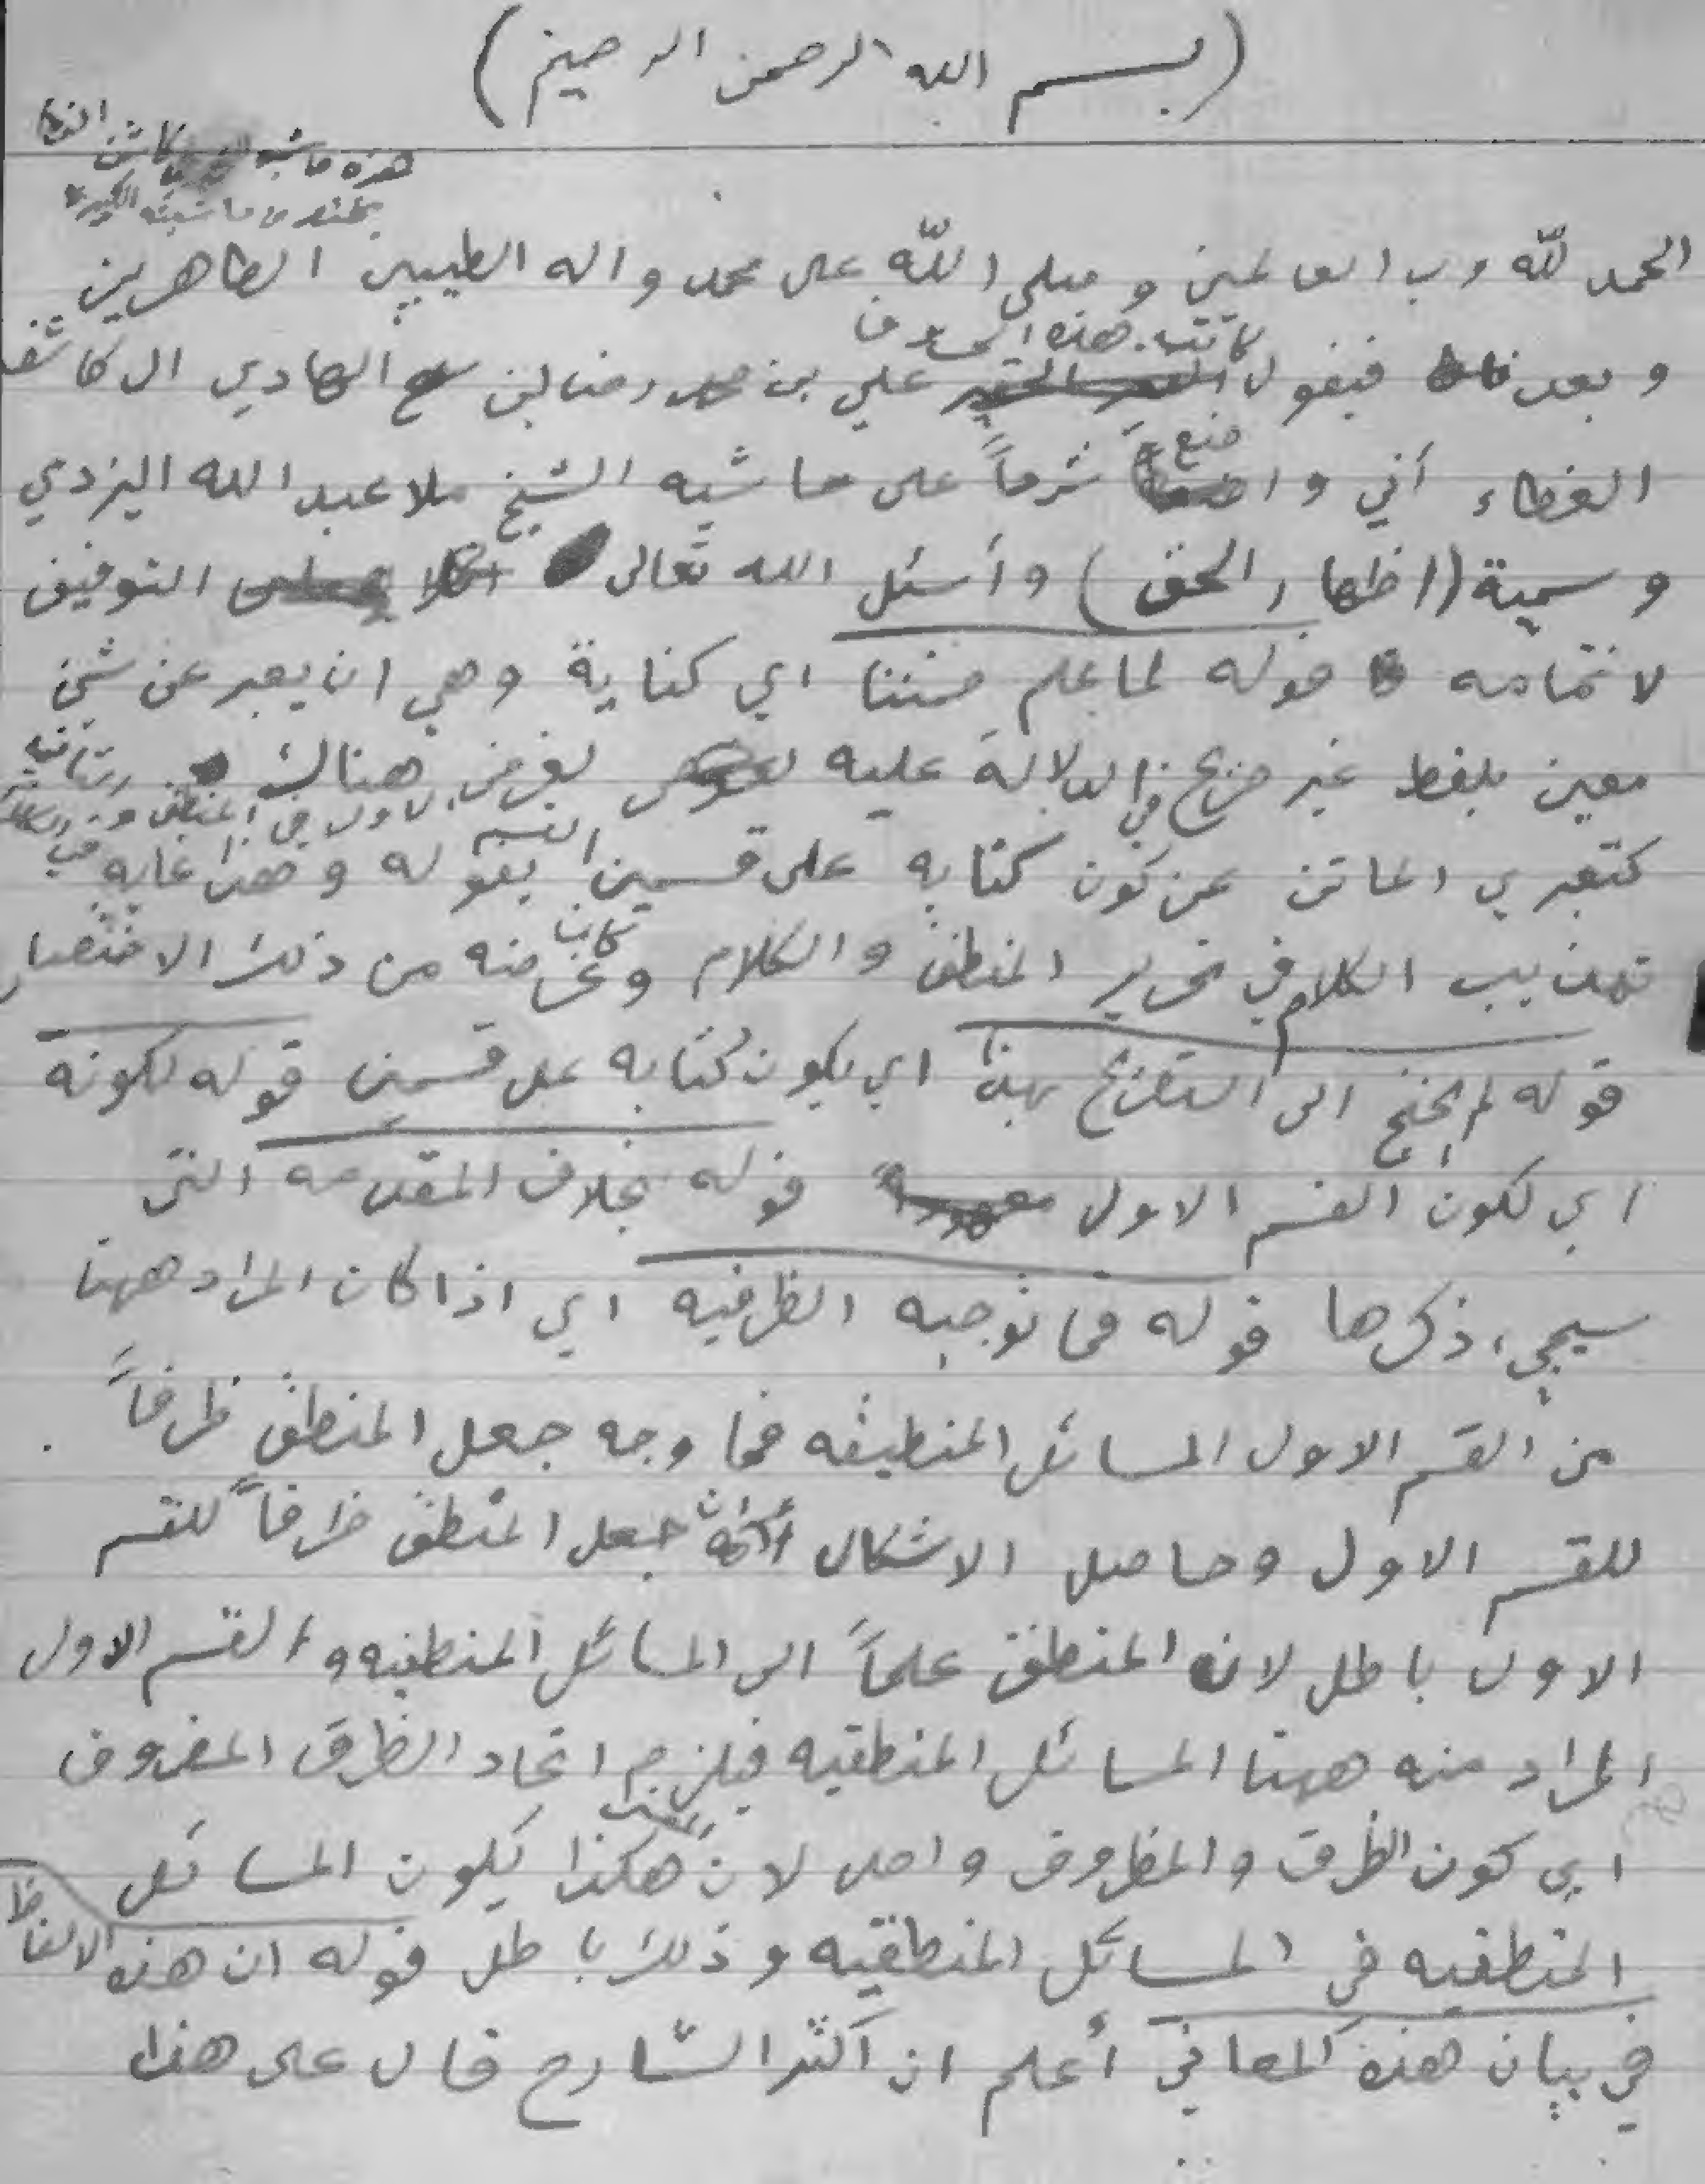 (بسم الله الرحمن الرحيم)
هذه حاشية كاشف الغطا
حاشيته الكبيرة
الحمد لله رب العالمين وصلى الله على محمد واله الطيبين الطاهرين
كاتب هذه الحروف
وبعد فيقول علي بن محمد رضا بن الهادي ال كاشف
الغطاء أني واضع شرحاً على حاشيه الشيخ ملا عبدالله اليزدي
وسميته (اظهار الحق) وأسئل الله تعالى التوفيق
لاتمامه قوله لما علم ضمنا اي كناية وهي ان يعبر عن شيئ
معين بلفظ غير صريح في الدلالة عليه لغرض هناك
القسم الاول في المنطق
كتعبير الماتن عن كون كتابه على قسمين بقوله وهذا غاية
تهذيب الكلام في تحرير المنطق والكلام وكان غرضه من ذلك الاختصار
قوله لم يحتج الى التصريح بهذا اي بكون كتابه على قسمين قوله لكونه
اي لكون القسم الاول قوله بخلاف المقدمه التي
سيجيء ذكرها قوله فما توجيه الظرفيه اي اذا كان المراد ههنا
من القسم الاول المسائل المنطيقه فما وجه جعل المنطق ظرفاً
للقسم الاول وحاصل الاشكال أن جعل المنطق ظرفاً للقسم
الاول باطل لان المنطق علماً الى المسائل المنطقيه والقسم الاول
المراد منه ههنا المسائل المنطقيه فيلزم اتحاد الظرف المضروف
اي كون الظرف والمظروف واحد لان هكذا يكون المسائل
المنطقيه في المسائل المنطقيه وذلك باطل قوله ان هذه الالفاظ
في بيان هذه المعاني أعلم ان اكثر الشارح قال على هذا